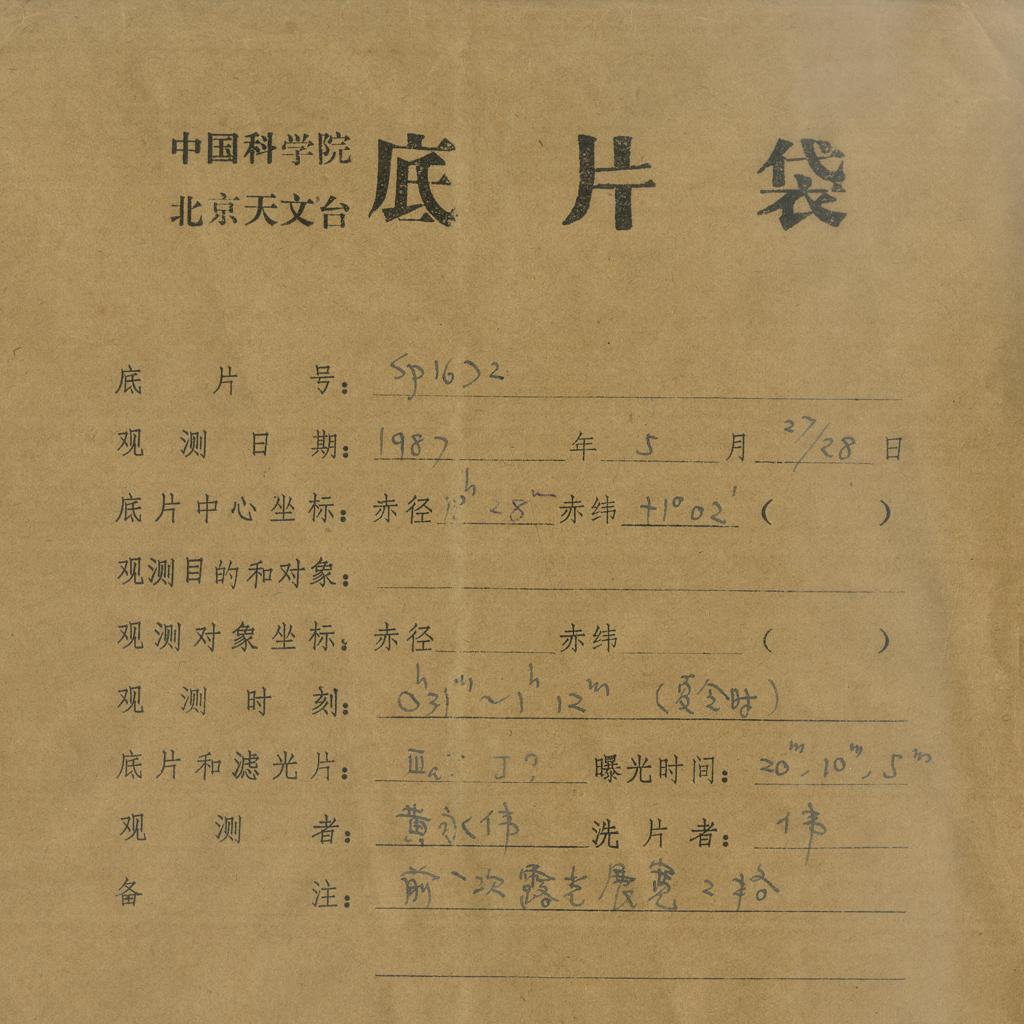 中国科学院
北京天文台
底片袋
底片号：Sp1672
观测日期：1987年5月27/28日
底片中心坐标：赤径 28m 赤纬+1°02′（ ）
观测目的和对象：
观测对象坐标：赤径 赤纬 （ ）
观测时刻：0h31m～1h12m（夏令时）
底片和滤光片：IIIa J? 曝光时间：20m，10m，5m
观测者：黄永伟 洗片者：伟
备注：前一次露光展宽2格